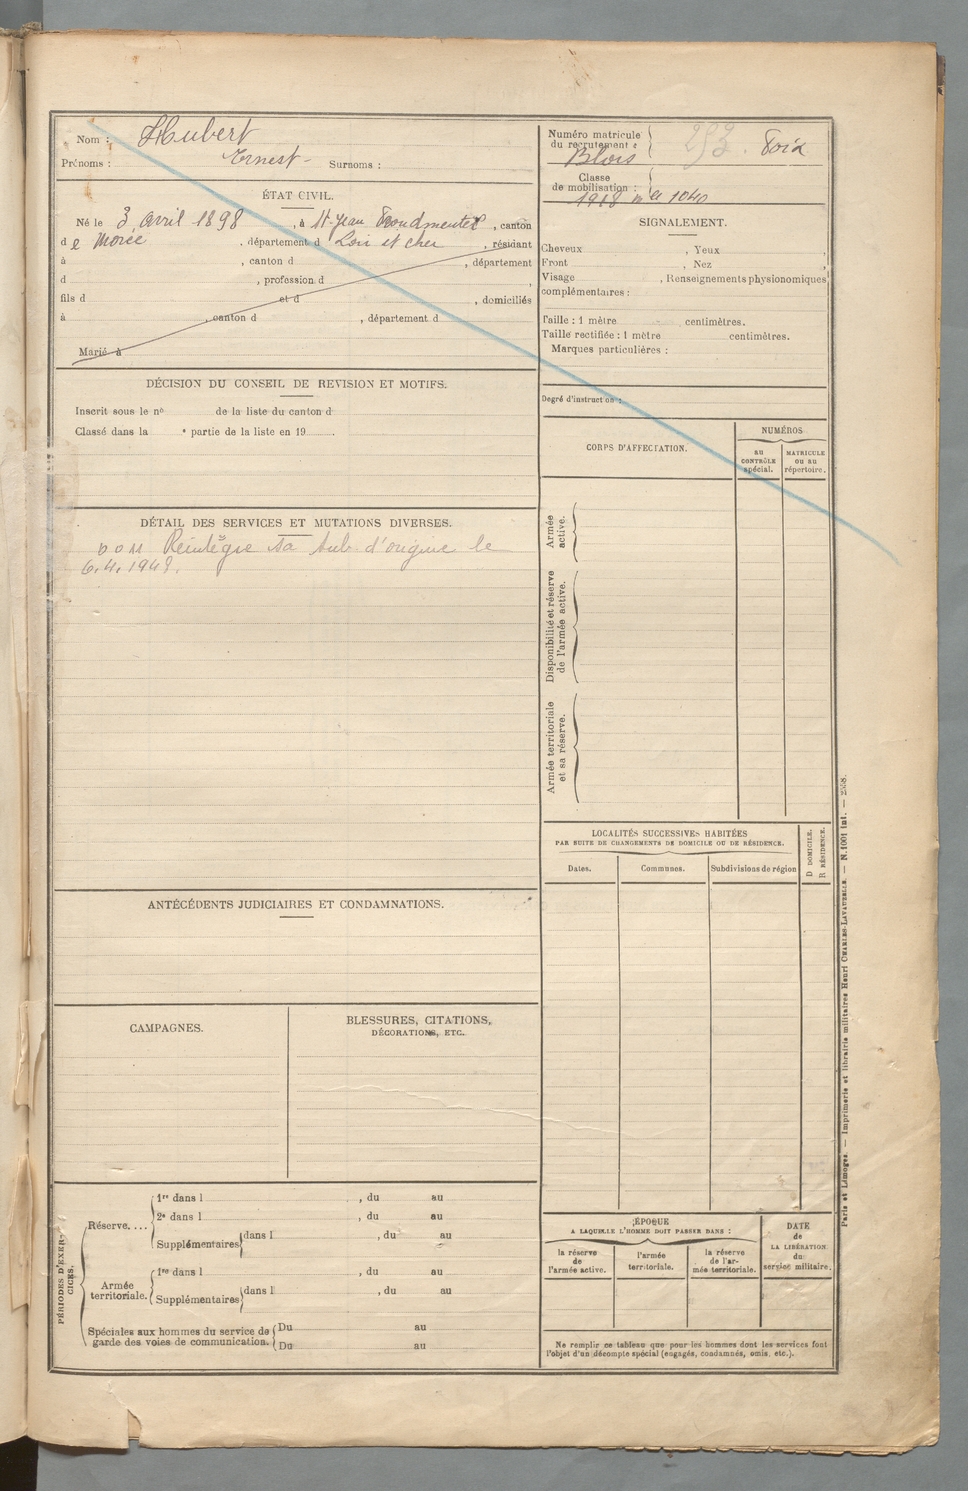 Nom : Hubert
Prénoms : Ernest Surnoms :
ÉTAT CIVIL.
Né le 3 avril 1898, à St-Jean Froidmentel, canton
de Morée, département d Loir et cher, résidant
à , canton d , département
d , profession d ,
fils d et d , domiciliés
à , canton d , département d
Marié à
DÉCISION DU CONSEIL DE REVISION ET MOTIFS.
Inscrit sous le nº de la liste du canton d
Classé dans la e partie de la liste en 19
DÉTAIL DES SERVICES ET MUTATIONS DIVERSES.
Réintègre sa sub. d'origine le
ANTÉCÉDENTS JUDICIAIRES ET CONDAMNATIONS.
CAMPAGNES.
BLESSURES, CITATIONS,
DÉCORATIONS, ETC.
PÉRIODES D'EXER-
CICES.
Réserve....
1re dans l , du au
2e dans l , du au
Supplémentaires dans l , du au
Armée
territoriale.
1re dans l , du au
Supplémentaires dans l , du au
Spéciales aux hommes du service de
garde des voies de communication.
Du au
Du au
Numéro matricule
du recrutement :
253. Foix
Blois
Classe
de mobilisation :
1918 mle 1040
SIGNALEMENT.
Cheveux , Yeux ,
Front , Nez ,
Visage , Renseignements physionomiques
complémentaires :
Taille : 1 mètre centimètres.
Taille rectifiée : 1 mètre centimètres.
Marques particulières :
Degré d'instruction :
CORPS D'AFFECTATION.
NUMÉROS
au
CONTRÔLE
spécial.
MATRICULE
ou au
répertoire.
Armée
active.
Disponibilité et réserve
de l'armée active.
Armée territoriale
et sa réserve.
LOCALITÉS SUCCESSIVES HABITÉES
PAR SUITE DE CHANGEMENTS DE DOMICILE OU DE RÉSIDENCE.
D DOMICILE.
R RÉSIDENCE.
Dates.
Communes.
Subdivisions de région
ÉPOQUE
A LAQUELLE L'HOMME DOIT PASSER DANS :
la réserve
de
l'armée active.
l'armée
territoriale.
la réserve
de l'ar-
mée territoriale.
DATE
de
LA LIBÉRATION
du
service militaire.
Ne remplir ce tableau que pour les hommes dont les services font
l'objet d'un décompte spécial (engagés, condamnés, omis, etc.).
Paris et Limoges. — Imprimerie et librairie militaires Henri CHARLES-LAVAUZELLE. — N. 1001 int. —